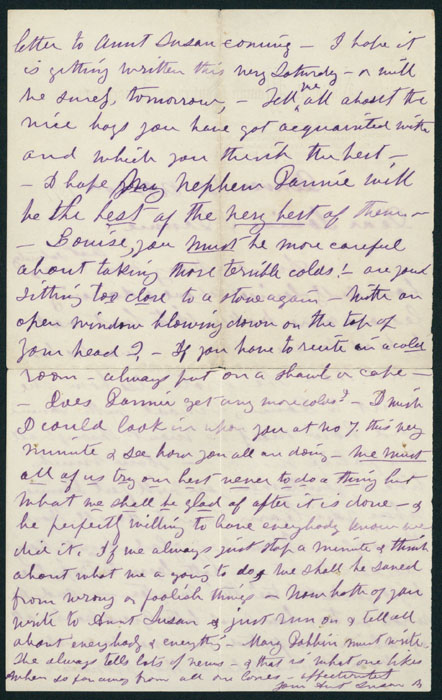 letter to Aunt Susan coming – I hope it
is getting written this very Saturday – or will
be surely tomorrow, – Tell me all about the
nice boys you have got acquainted with
and which you think the best, –
– I hope my nephew Dannie will
be the best of the very best of them –
– Louise, you must be more careful
about taking those terrible colds! – are you
sitting too close to a stove again – with an
open window blowing down on the top of
your head? – If you have to recite in a cold
room – always put on a shawl or cape –
– Does Dannie get any more colds? – I wish
I could look in upon you at no 7 this very
minute & see how you all are doing – We must
all of us try our best never to do a thing but
what we shall be glad of after it is done – &
be perfectly willing to have everybody know we
did it. If we always just stop a minute & think
about what we a going to do, we shall be saved
from wrong or foolish things – Now both of you
write to Aunt Susan & just run on & tell all
about everybody & everything – Mary must write.
She always tells lots of news – & that is what one likes
when so far away from all our loves – affectionately
your Aunt Susan B